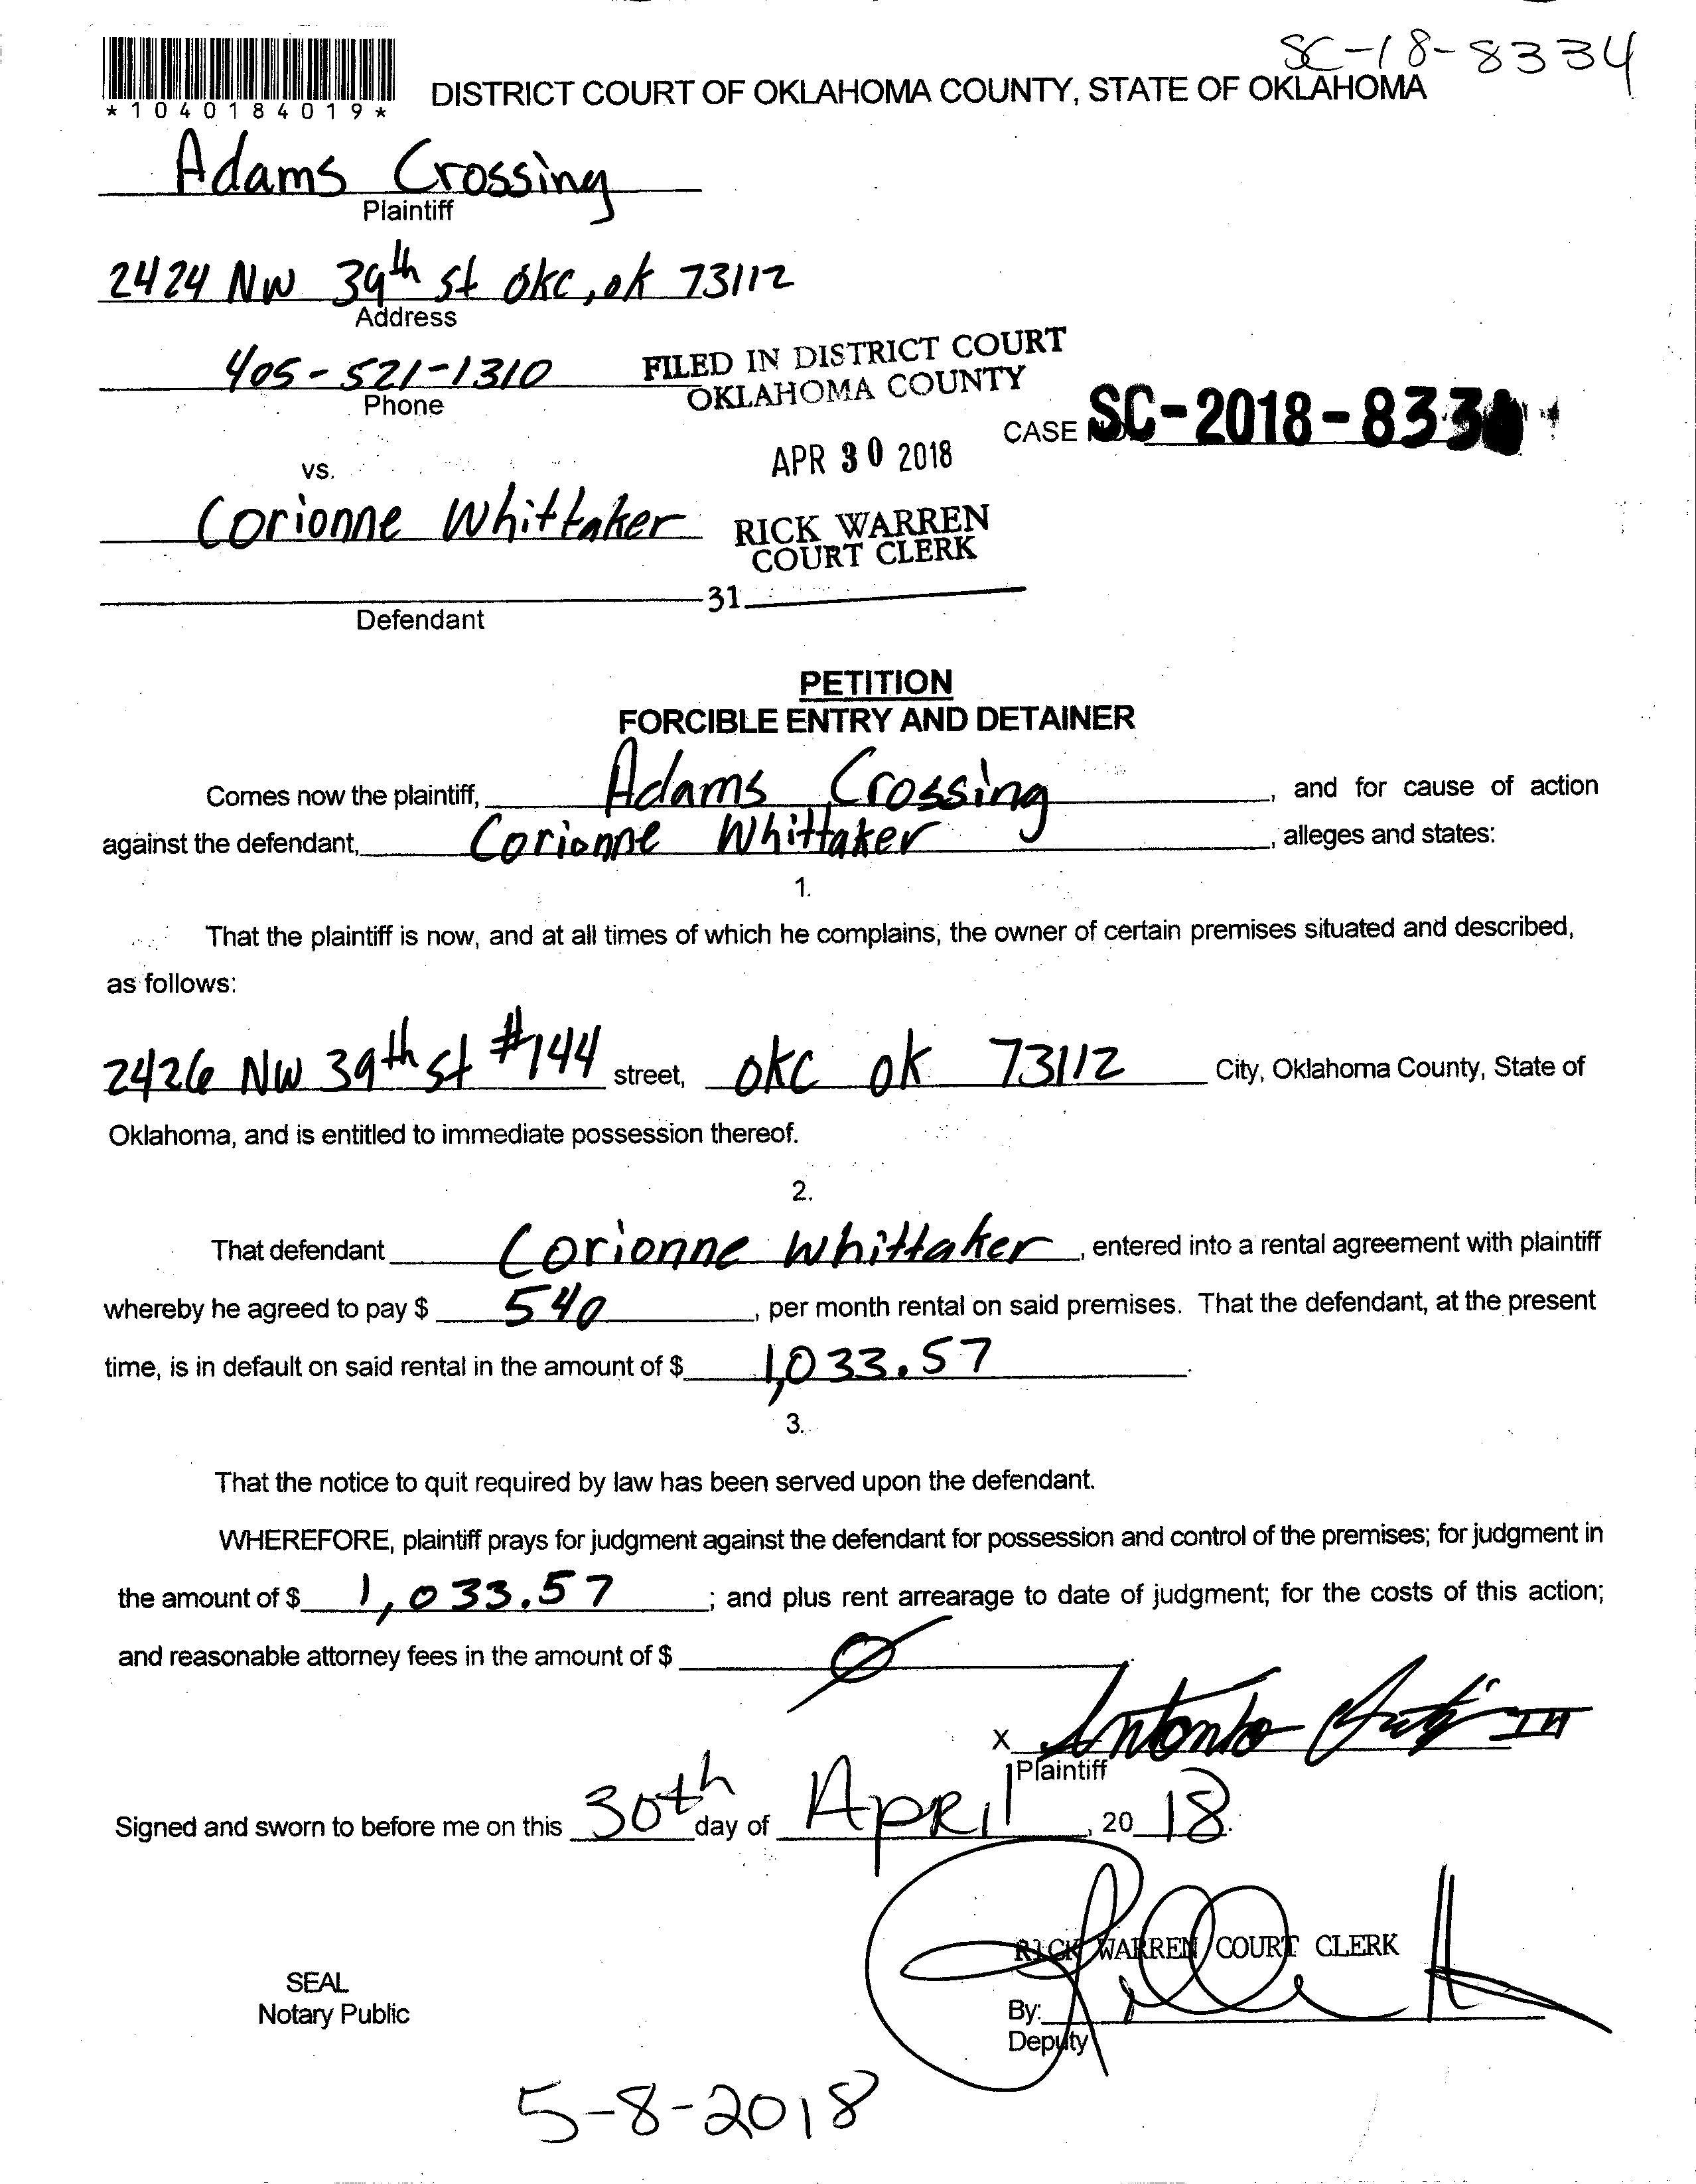 SC-18-8334
*1040184019*
DISTRICT COURT OF OKLAHOMA COUNTY, STATE OF OKLAHOMA
Adams Crossing
Plaintiff
2424 NW 39th st OKC, OK 73112
Address
405-521-1310
Phone
FILED IN DISTRICT COURT
OKLAHOMA COUNTY
CASE SC-2018-833
APR 30 2018
vs.
Corionne Whittaker
RICK WARREN
COURT CLERK
31
Defendant
PETITION
FORCIBLE ENTRY AND DETAINER
Comes now the plaintiff, Adams Crossing, and for cause of action
against the defendant, Corionne Whittaker, alleges and states:
1.
That the plaintiff is now, and at all times of which he complains, the owner of certain premises situated and described,
as follows:
2426 NW 39th st #144 street, OKC OK 73112 City, Oklahoma County, State of
Oklahoma, and is entitled to immediate possession thereof.
2.
That defendant Corionne Whittaker, entered into a rental agreement with plaintiff
whereby he agreed to pay $ 540, per month rental on said premises. That the defendant, at the present
time, is in default on said rental in the amount of $ 1,033.57.
3.
That the notice to quit required by law has been served upon the defendant.
WHEREFORE, plaintiff prays for judgment against the defendant for possession and control of the premises; for judgment in
the amount of $ 1,033.57; and plus rent arrearage to date of judgment; for the costs of this action;
and reasonable attorney fees in the amount of $ 0
X Antonio III
Plaintiff
Signed and sworn to before me on this 30th day of April, 20 18.
RICK WARREN COURT CLERK
SEAL
Notary Public
By:
Deputy
5-8-2018